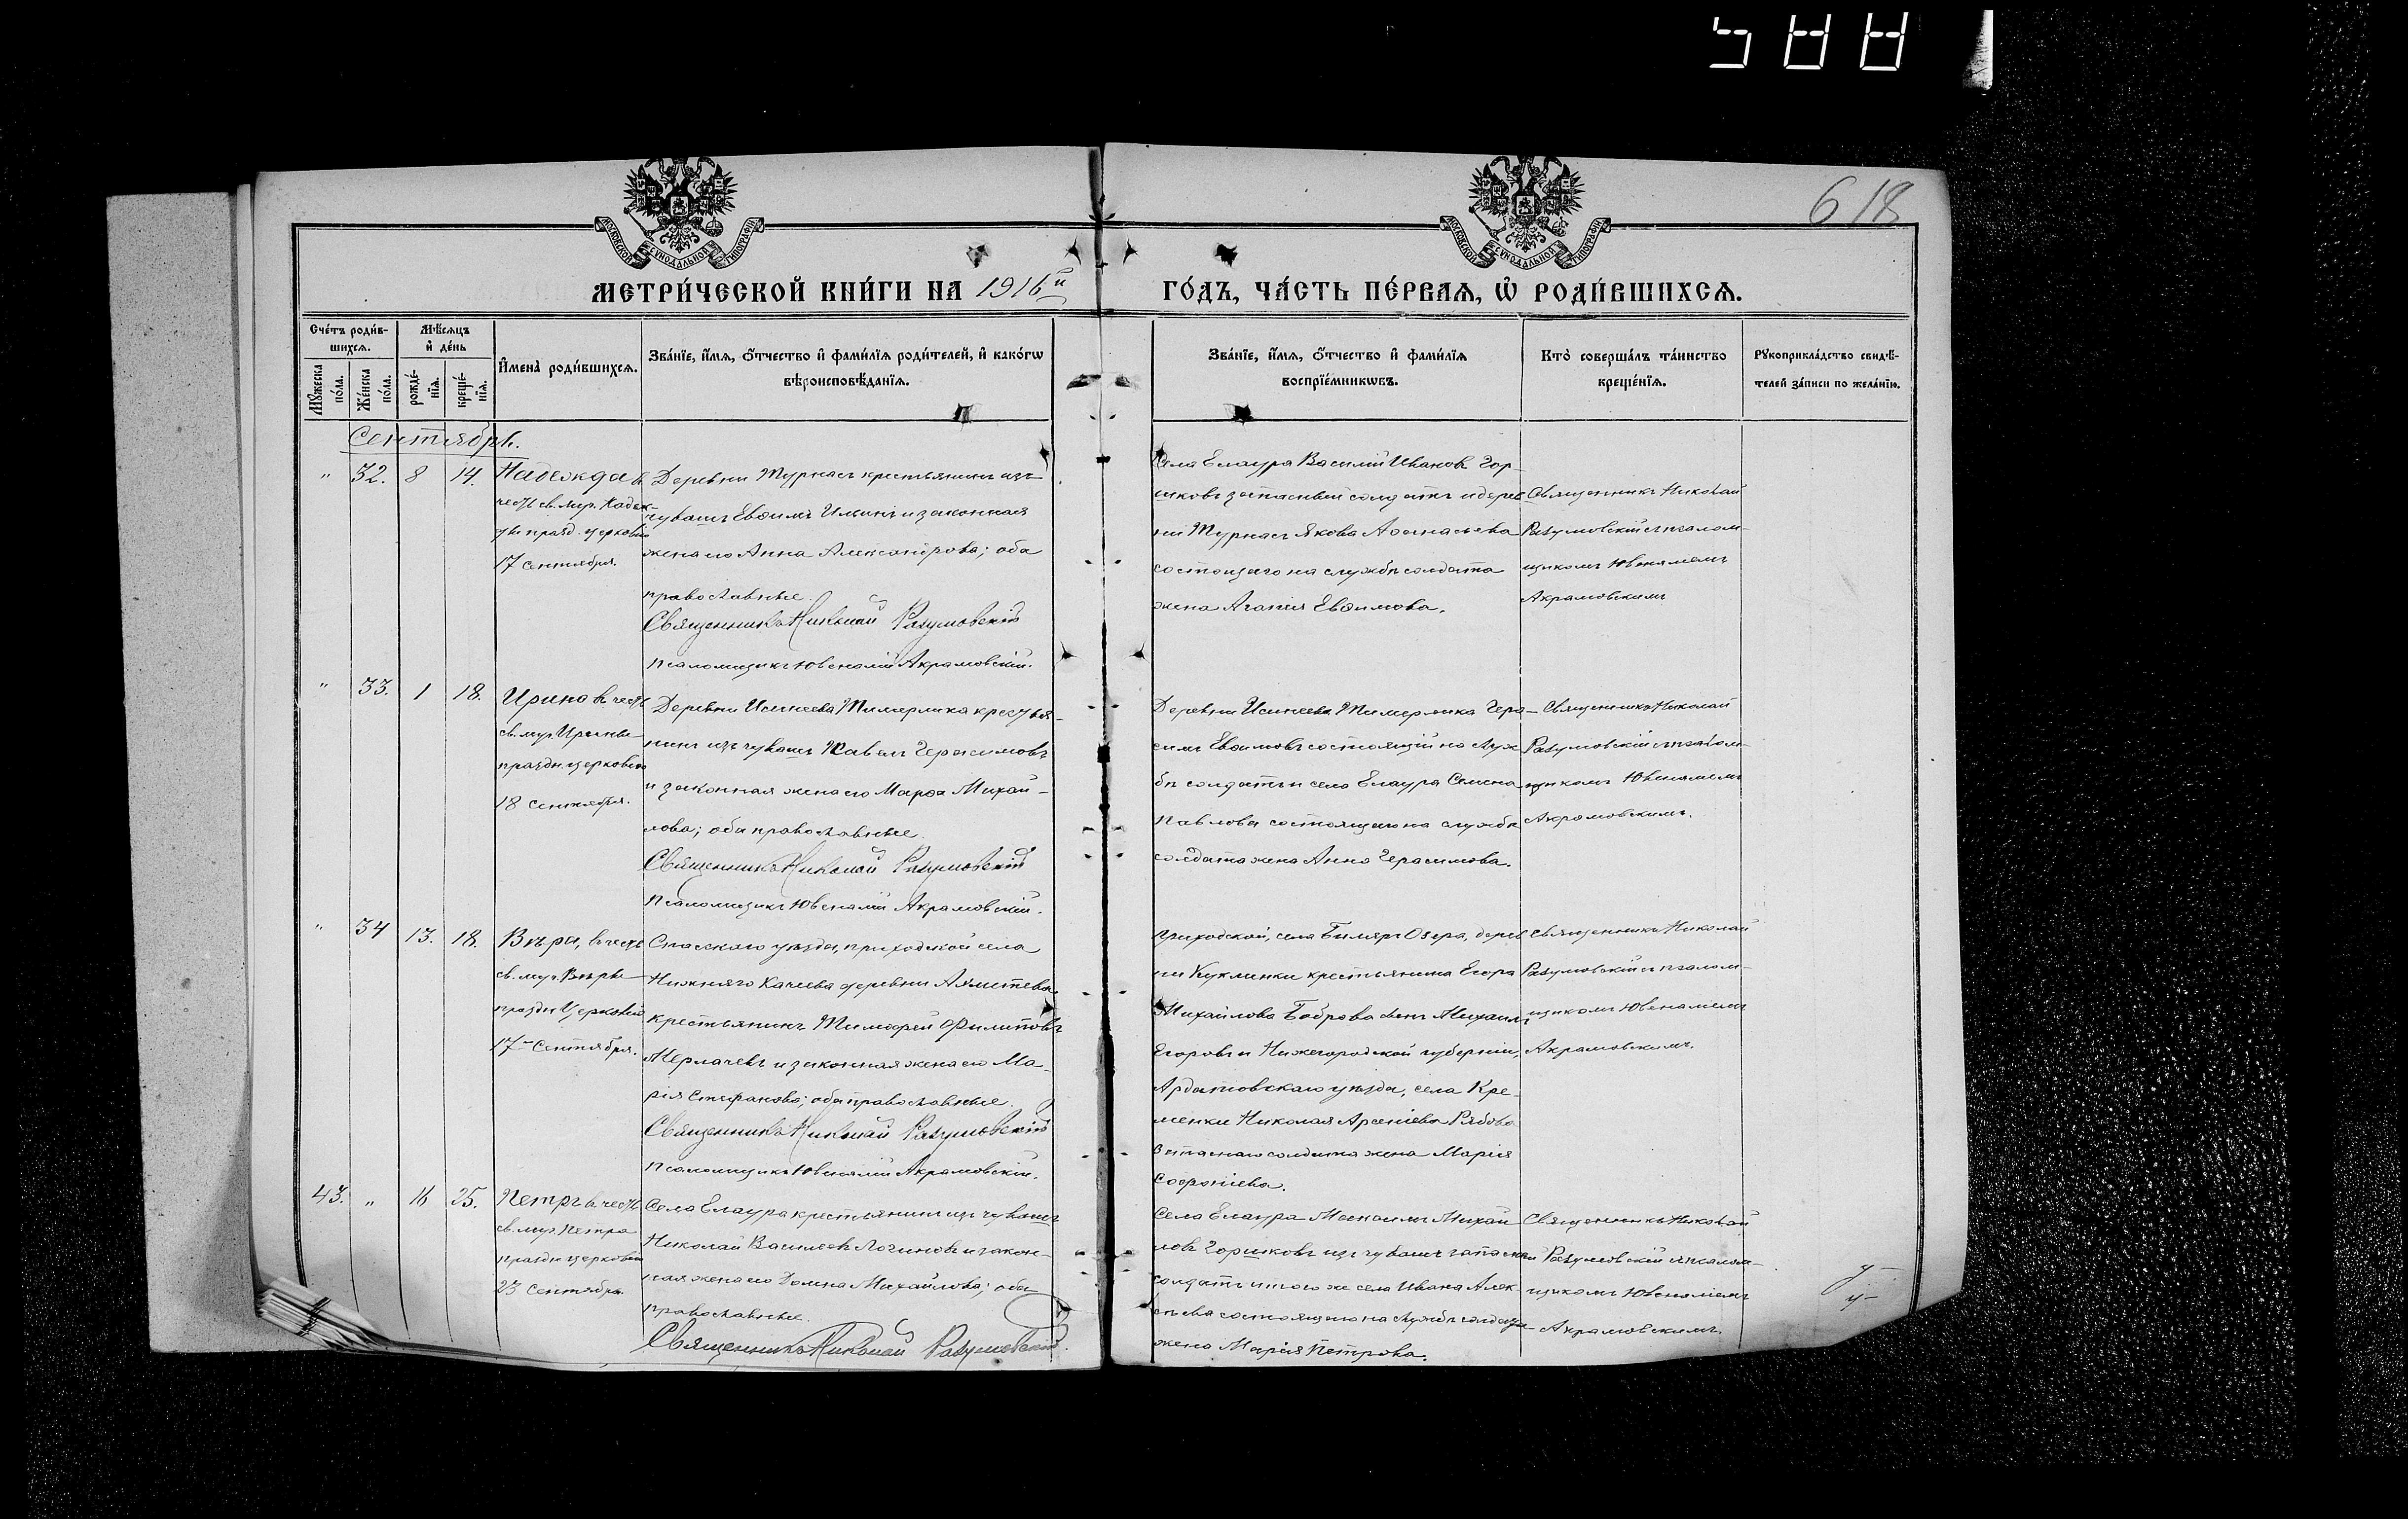 618
МЕТРИ́ЧЕСКОЙ КНИ́ГИ НА 1916й ГО́ДЪ, ЧА́СТЬ ПЕ́РВАЯ, Ѡ РОДИ́ВШИХСЯ.
Сче́тъ роди́в-
шихсѧ.
Мѣ́сѧцъ
и де́нь
Мꙋ́жеска
по́ла.
Же́нска
по́ла.
рожде́-
нїѧ.
креще́-
нїѧ.
И҆мена̀ роди́вшихсѧ.
Зва́нїе, и҆́мѧ, ѻ҆́тчество и҆ фами́лїѧ роди́телей, и҆ како́гѡ
вѣроисповѣ́данїѧ.
Зва́нїе, и҆́мѧ, ѻ҆́тчество и҆ фами́лїѧ
воспрїе́мникѡвъ.
Кто̀ соверша́лъ та́инство
креще́нїѧ.
Рꙋкоприкла́дство свидѣ́-
телей за́писи по жела́нїю.
Сентябрь.
" 32. 8 14.
Надежда въ
честь св. муч. Надеж-
ды празд. церковію
17 сентября.
Деревни Турнасъ крестьянинъ изъ
чувашъ Евѳимъ Ильинъ и законная
жена его Анна Александрова; оба
православные.
Священникъ Николай Разумовскій
Псаломщикъ Ювеналій Акрамовскій.
Села Елаура Василій Ивановъ Гор-
шковъ запасный солдатъ и дерев
ни Турнасъ Якова Аѳанасьева
состоящаго на службѣ солдата
жена Агапія Евѳимова.
Священникъ Николай
Разумовскій съ псалом-
щикомъ Ювеналіемъ
Акрамовскимъ
" 33. 1 18.
Ирина въ честь
св. муч. Ирины
праздн. церковію
18 сентября.
Деревни Исинеева Тимерлика крестья-
нинъ изъ чувашъ Павелъ Герасимовъ
и законная жена его Марѳа Михай-
лова; оба православные.
Священникъ Николай Разумовскій
Псаломщикъ Ювеналій Акрамовскій.
Деревни Исинеева Тимерлика Гера-
симъ Евѳимовъ состоящій на служ
бѣ солдатъ и села Елаура Семена
Павлова состоящаго на службѣ
солдата жена Анна Герасимова.
Священникъ Николай
Разумовскій съ псалом-
щикомъ Ювеналіемъ
Акрамовскимъ.
" 34 13. 18.
Вѣра, въ честь
св. муч. Вѣры
праздн. Церковію
17го Сентября.
Спасскаго уѣзда, приходской села
Нижняго Качеева деревни
крестьянинъ Тимоѳей Филиповъ
и законная жена его Ма-
рія Стефанова; оба православные.
Священникъ Николай Разумовскій
Псаломщикъ Ювеналій Акрамовскій.
приходской, села Билярь Озера, дерев
ни Куклинки крестьянина Егора
Михайлова Боброва сынъ Михаилъ
Егоровъ и Нижегородской губерніи,
Ардатовскаго уѣзда, села Кре-
менки Николая Арсеніева Рябова
запаснаго солдата жена Марія
Софроніева.
Священникъ Николай
Разумовскій съ псалом-
щикомъ Ювеналіемъ
Акрамовскимъ.
43. " 16 25.
Петръ въ честь
св. муч. Петра
праздн церковію
23 Сентября.
Села Елаура крестьянинъ изъ чувашъ
Николай Васильевъ Логиновъ и закон-
ная жена его Домна Михайлова; оба
православные.
Священникъ Николай Разумовскій.
Села Елаура Максимъ Михай
ловъ Горшковъ изъ чувашъ запасный
солдатъ и того же села Ивана Алек-
сѣева состоящаго на службѣ солдата
жена Марія Петрова.
Священникъ Николай
Разумовскій съ псалом-
щикомъ Ювеналіемъ
Акрамовскимъ.